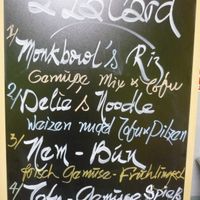 1/ Monkbowl's Riz
Gemüse Mix & Tofu
2/ Delie's Noodle
Weizen nudel Tofu & Pilzen
3/ Nem - Bún
frisch Gemüse - Frühlingsrol
4/ Tofu - Gemüse Spieß